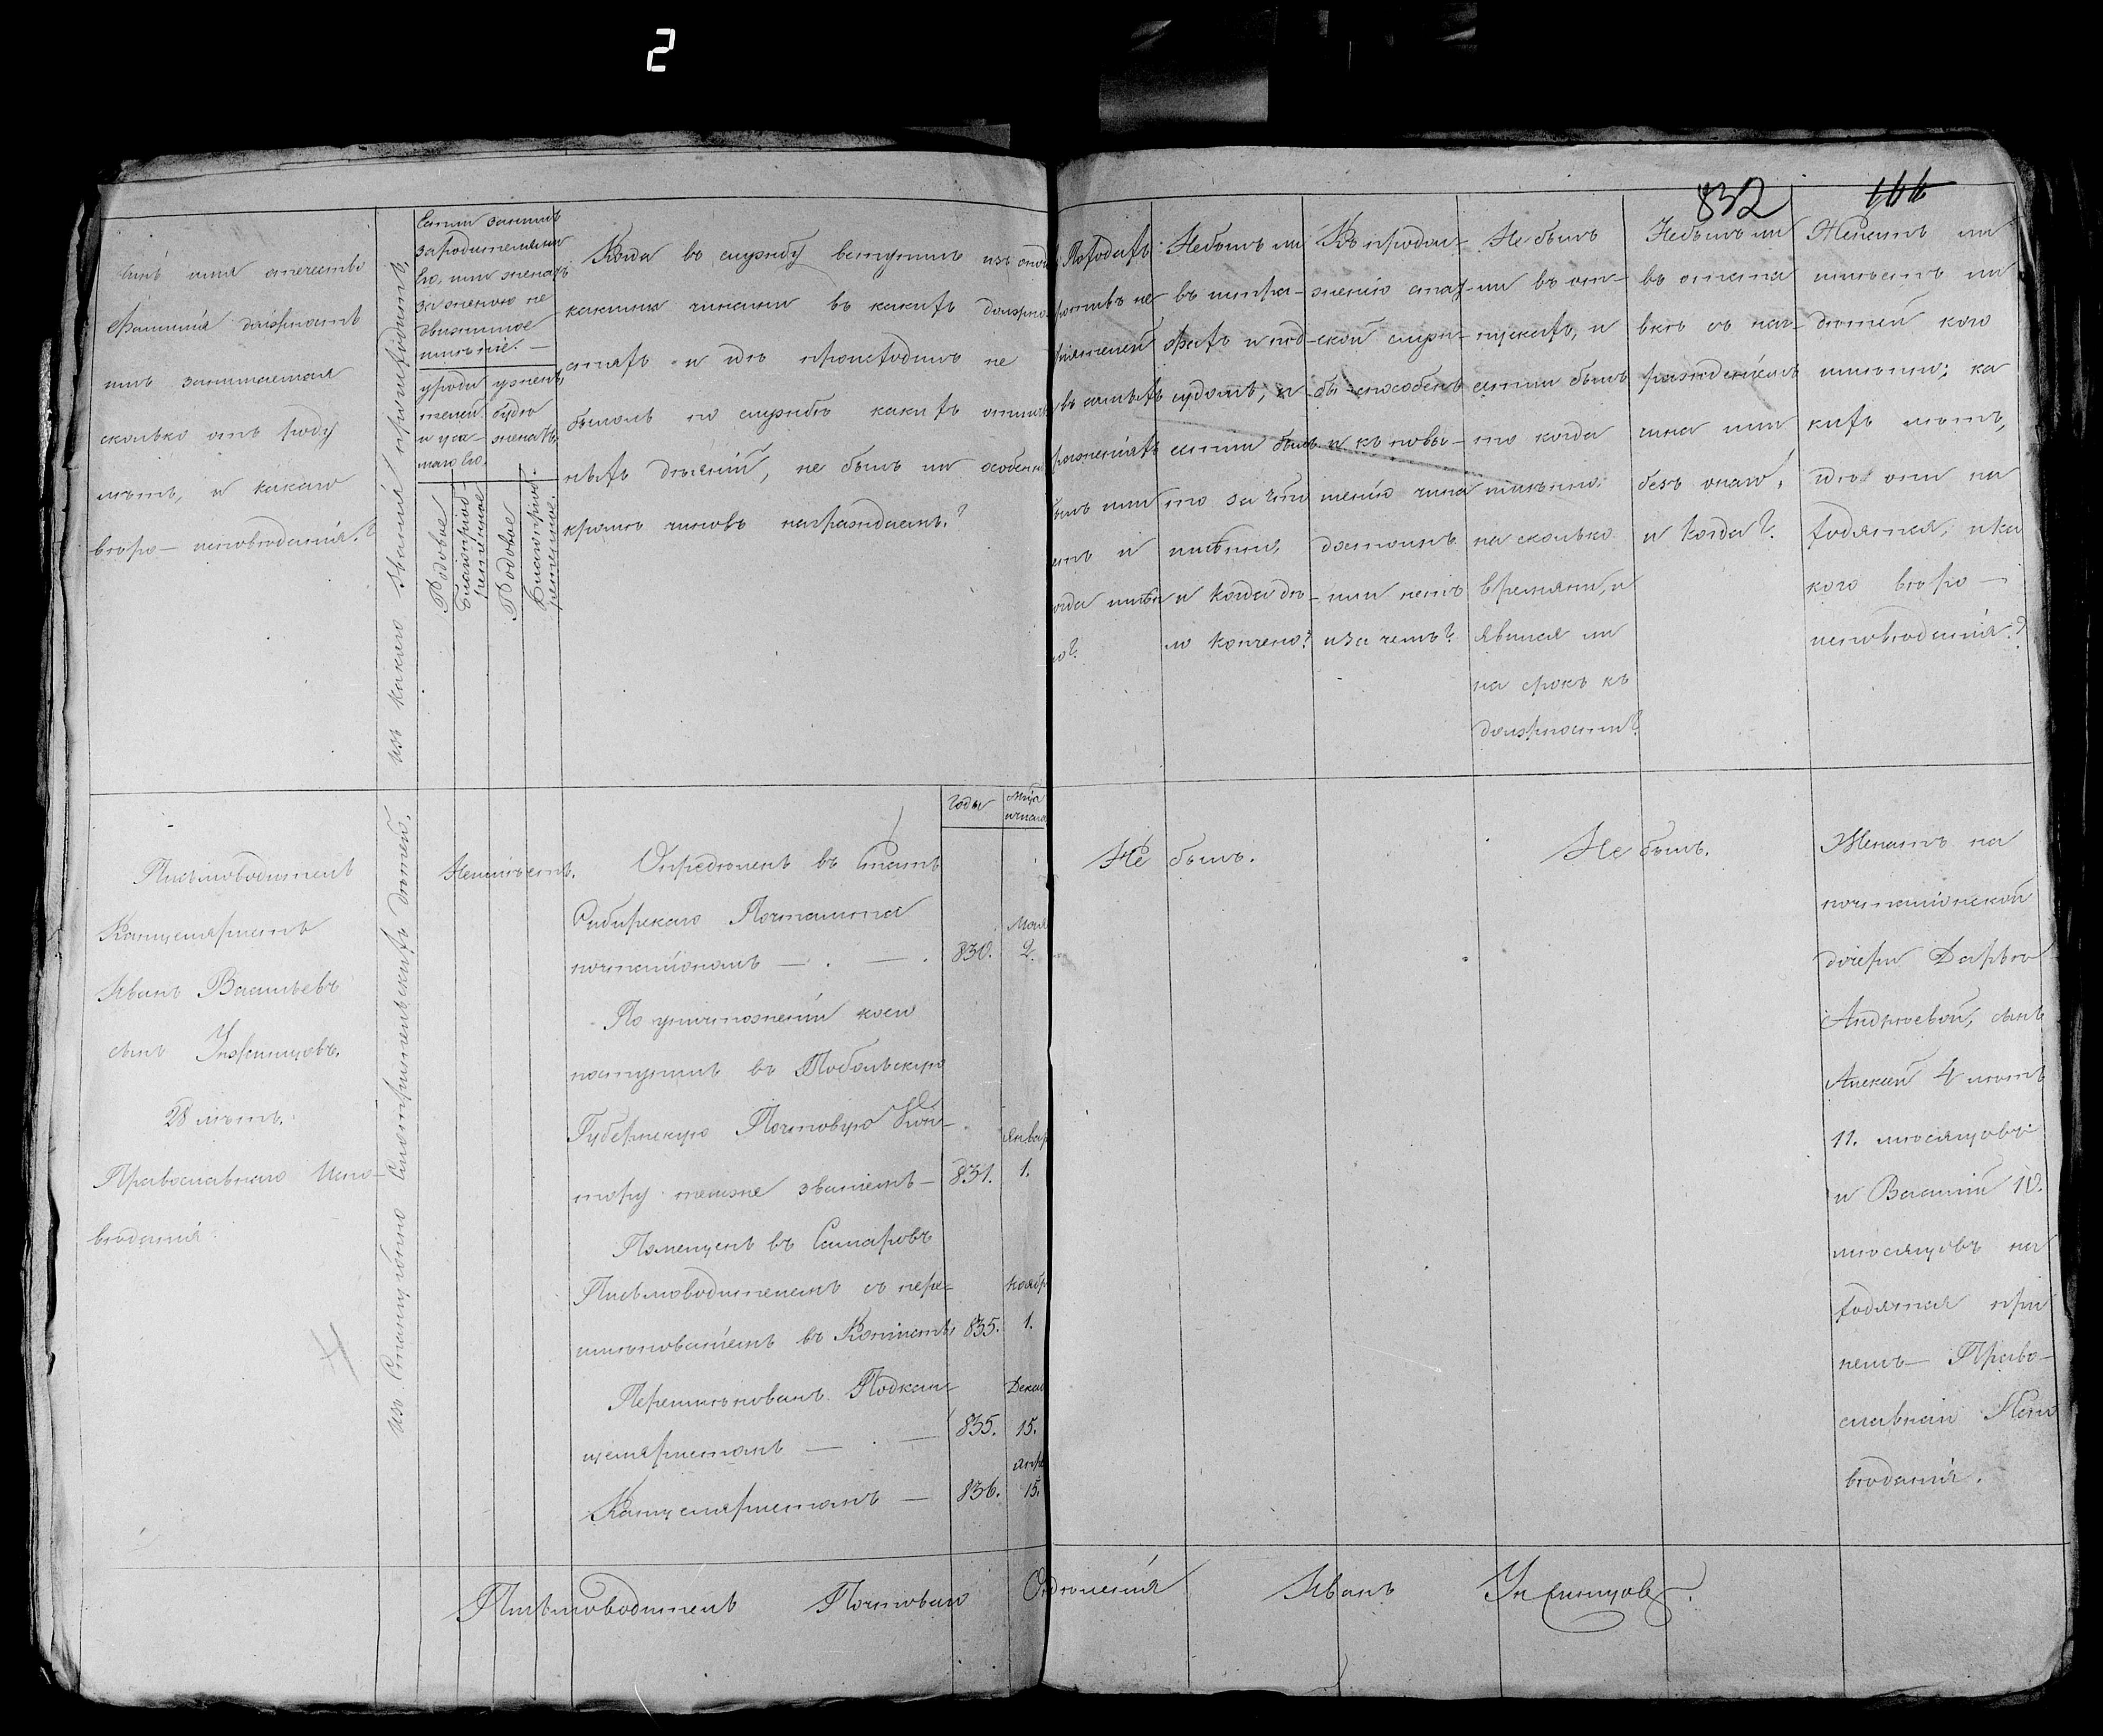 2
832
166
Чинъ имя отечество
Фамилія должность
имъ занимаемая
сколько отъ роду
лѣтъ, и какаго
вѣро-исповѣданія.?
Изъ какаго званія происходитъ,
Естли занимъ
за родителями
Его, или женатъ
за женою не
движимое
имѣніе.
у роди
телей
и у са-
маго Его.
у жены,
буде
женатъ,
Родовое
Благопріоб-
ретенное
Родовое
Благопріоб-
ретенное.
Когда въ службу вступилъ изъ оной
какими чинами въ какихъ должно
стяхъ и гдѣ происходилъ не
былоль по службѣ какихъ отлич
ныхъ дѣяній, не былъ ли особенно
кромѣ чиновъ награждаемъ.?
Въ походахъ
противъ не
пріятелей
въ самыхъ
раженіяхъ
былъ или
нетъ и
огда имѣн
но?
Небылъ ли
въ штра-
фахъ и под
судомъ, и
естли былъ
то за что
имѣнно,
и когда дѣ-
ло кончено?
Къ продол-
женію стат-
ской служ-
бы способенъ
и къ повы-
шенію чина
достоинъ
или нетъ
и за чемъ?
Не былъ
ли въ от-
пускахъ, и
естли былъ
то когда
имѣнно.
на сколько
времяни, и
явился ли
на срокъ къ
должности?
Небылъ ли
въ отста
вкѣ съ наг-
ражденіемъ
чина или
безъ онаго,
и когда?
Женатъ ли
имѣетъ ли
дѣтей кого
имѣнно; ка
кихъ лѣтъ,
гдѣ они на
ходятся, и ка
кого вѣро-
исповѣданія.?
Годы
Мѣсяц
и числа
Письмоводитель
Канцеляристъ
Иванъ Васильевъ
сынъ Унжинцовъ.
28 лѣтъ.
Православнаго Испо-
вѣданія.
Изъ Станціонно Смотрительскихъ дѣтей.
Неимѣетъ.
Опредѣленъ въ Штатъ
Сибирскаго Почтамта
почталіономъ — 830. Маія 2.
По уничтоженіи коего
поступилъ въ Тобольскую
Губернскую Почтовую Кон-
тору темже званіемъ — 831. Январ 1.
Помещенъ въ Самаровъ
Письмоводителемъ съ пере-
имѣнованіемъ въ Копіисты 835. Ноябр 1.
Переимѣнованъ Подкан-
целяристомъ — 835. Декаб 15.
Канцеляристомъ — 836. Апре 15.
Не былъ.
Не былъ.
Женатъ на
почталіонской
дочери Дарьѣ
Андрѣевой, сынъ
Алексей 4 лѣтъ
11. мѣсяцовъ
и Василий 10.
мѣсяцовъ на
ходятся при
немъ — Право-
славнаи Испо
вѣданія.
Письмоводитель Почтоваго Отдѣленія Иванъ Унжинцовъ.